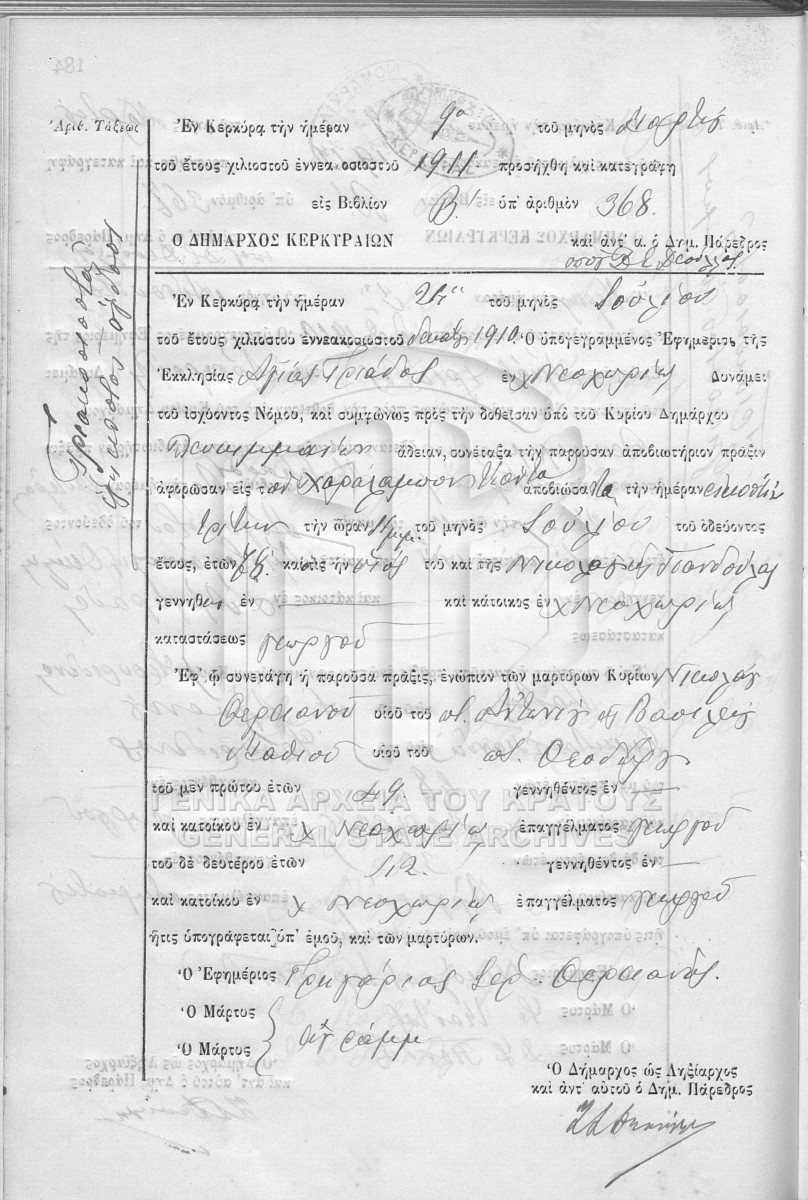 Ἀριθ. Τάξεως
Τριακοσιοστὸν ἑξηκοστὸν ὄγδοον
Ἐν Κερκύρᾳ τὴν ἡμέραν 9ην τοῦ μηνὸς Μαρτίου
τοῦ ἔτους χιλιοστοῦ ἐννεακοσιοστοῦ 1911 προσήχθη καὶ κατεγράφη
εἰς Βιβλίον Β' ὑπ' ἀριθμὸν 368.
Ο ΔΗΜΑΡΧΟΣ ΚΕΡΚΥΡΑΙΩΝ καὶ ἀντ' α. ὁ Δημ. Πάρεδρος
Ἐν Κερκύρᾳ τὴν ἡμέραν τοῦ μηνὸς Ἰουλίου
τοῦ ἔτους χιλιοστοῦ ἐννεακοσιοστοῦ δεκάτου 1910 Ὁ ὑπογεγραμμένος Ἐφημέριος τῆς
Ἐκκλησίας Ἁγίας Τριάδος ἐν χ Νεοχωρίῳ Δυνάμει
τοῦ ἰσχύοντος Νόμου, καὶ συμφώνως πρὸς τὴν δοθεῖσαν ὑπὸ τοῦ Κυρίου Δημάρχου
Λευκιμμαίων ἄδειαν, συνέταξα τὴν παροῦσαν ἀποβιωτήριον πρᾶξιν
ἀφορῶσαν εἰς τὸν Χαράλαμπον ἀποβιώσαντα τὴν ἡμέραν εἰκοστὴν
τρίτην τὴν ὥραν τοῦ μηνὸς Ἰουλίου τοῦ ὁδεύοντος
ἔτους, ἐτῶν καὶ ὅστις ἦν υἱός τοῦ καὶ τῆς Νικολάου
γεννηθεὶς ἐν — καὶ κάτοικος ἐν χ Νεοχωρίῳ
καταστάσεως γεωργοῦ
Ἐφ' ᾧ συνετάγη ἡ παροῦσα πρᾶξις, ἐνώπιον τῶν μαρτύρων Κυρίων Νικολάου
Θερειανοῦ υἱοῦ τοῦ ποτ. Ἀντωνίου καὶ Βασιλείου
υἱοῦ τοῦ ποτ. Θεοδώρου
τοῦ μὲν πρώτου ἐτῶν 49. γεννηθέντος ἐν —
καὶ κατοίκου ἐν χ Νεοχωρίῳ ἐπαγγέλματος γεωργοῦ
τοῦ δὲ δευτέρου ἐτῶν 42. γεννηθέντος ἐν —
καὶ κατοίκου ἐν χ Νεοχωρίῳ ἐπαγγέλματος γεωργοῦ
ἥτις ὑπογράφεται ὑπ' ἐμοῦ, καὶ τῶν μαρτύρων.
Ὁ Ἐφημέριος Γρηγόριος Ἱερ. Θερειανός.
Ὁ Μάρτυς
Ὁ Μάρτυς
Ὁ Δήμαρχος ὡς Ληξίαρχος
καὶ ἀντ' αὐτοῦ ὁ Δημ. Πάρεδρος
ΓΕΝΙΚΑ ΑΡΧΕΙΑ ΤΟΥ ΚΡΑΤΟΥΣ
GENERAL STATE ARCHIVES